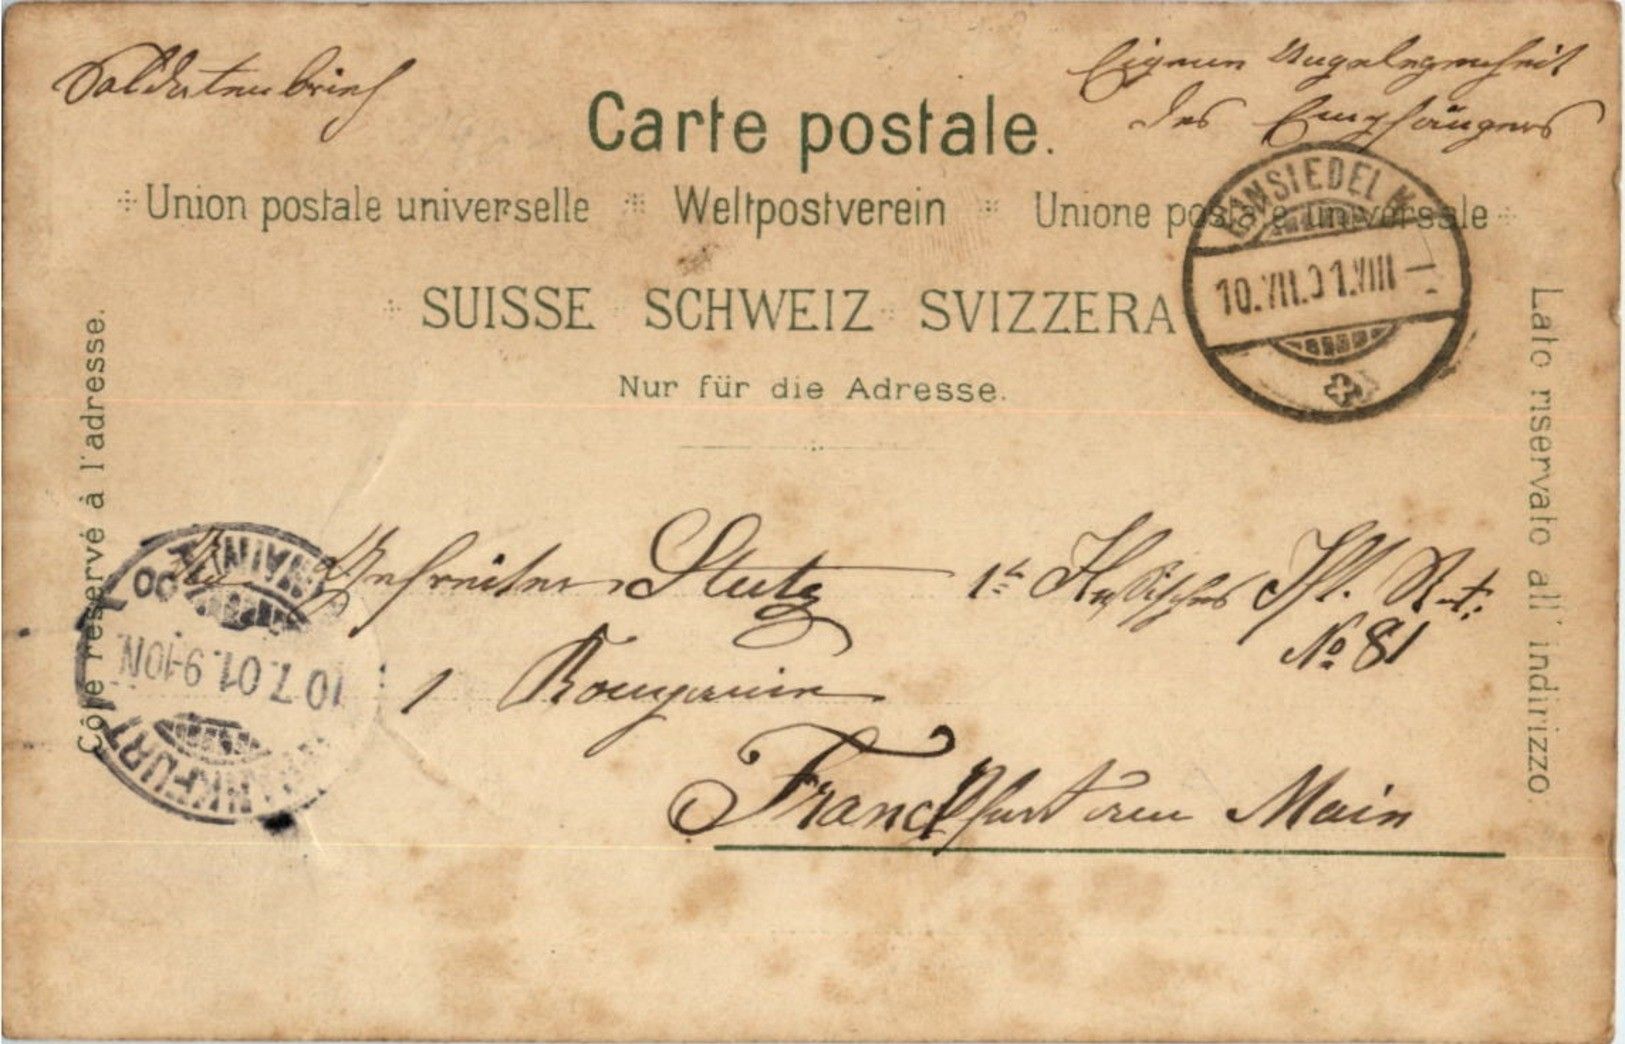 Soldatenbrief
Eigenen Angelegenheit
des Empfängers
Carte postale.
Union postale universelle Weltpostverein Unione postale universale
SUISSE SCHWEIZ SVIZZERA
Nur für die Adresse.
EINSIEDELN
10.VII.01.VIII
Côté réservé à l'adresse.
Lato riservato all' indirizzo.
An Gefreiter Stutz 1t Hessisches Ift. Rt.
No 81
1 Kompanie
Franckfurt am Main
FRANKFURT MAIN
10.7.01.9-10N